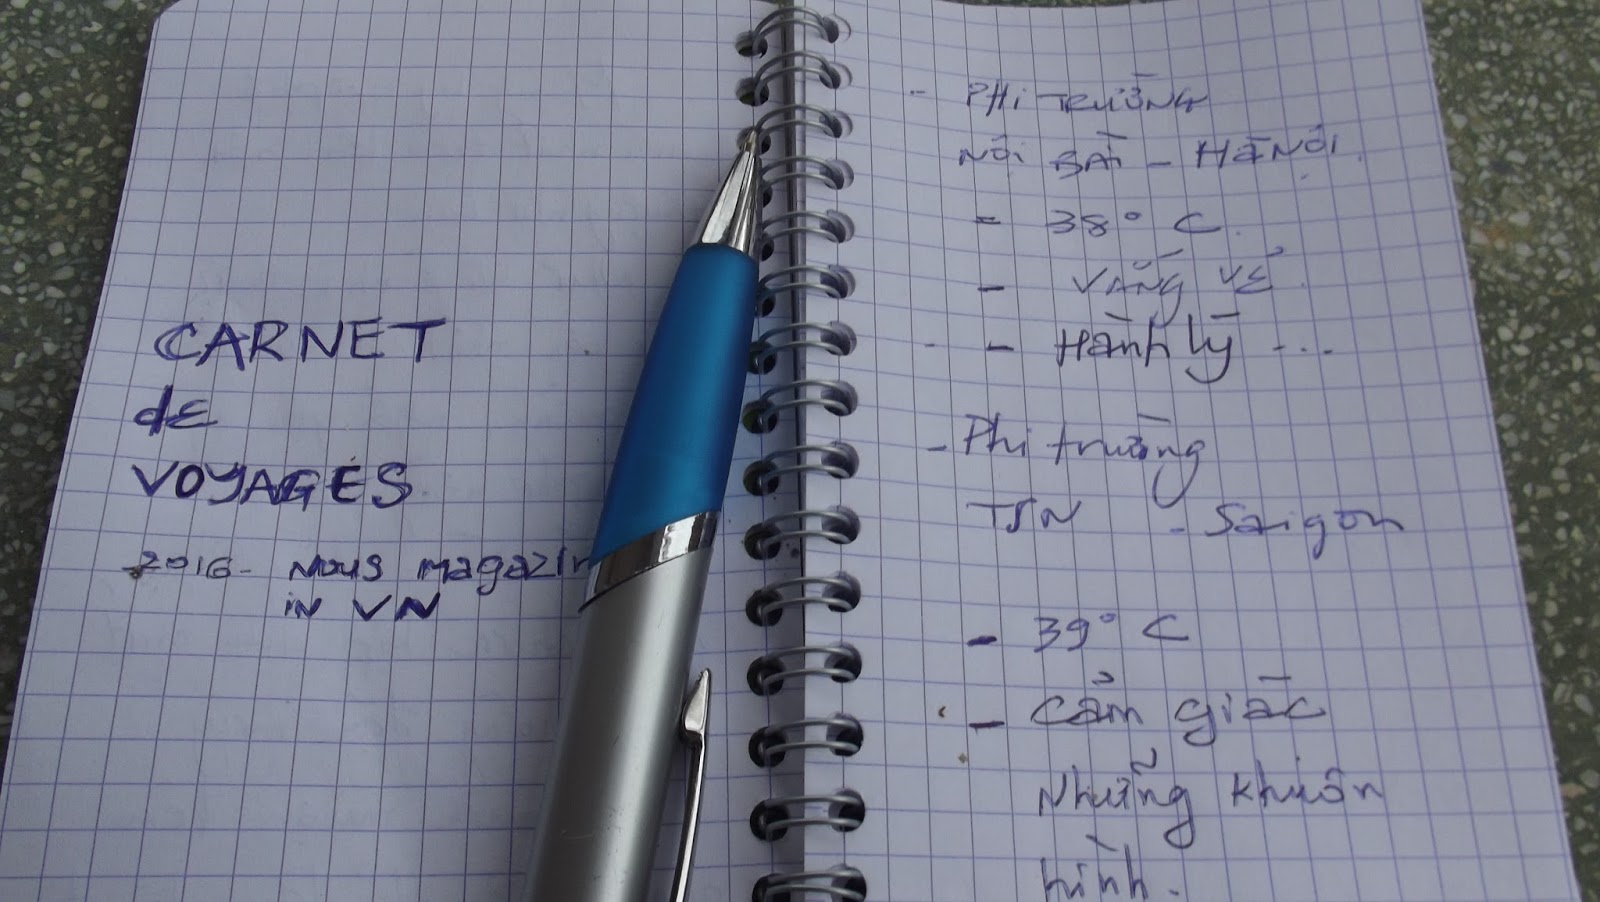 CARNET
de
VOYAGES
2016- NOUS magazin
in VN
- PHI TRƯỜNG
NỘI BÀI - HÀ NỘI.
- 38° C.
- VẮNG VẺ.
- Hành lý ...
- Phi trường
TSN - Saigon
- 39° C
- Cảm giác
Những khuôn
hình.